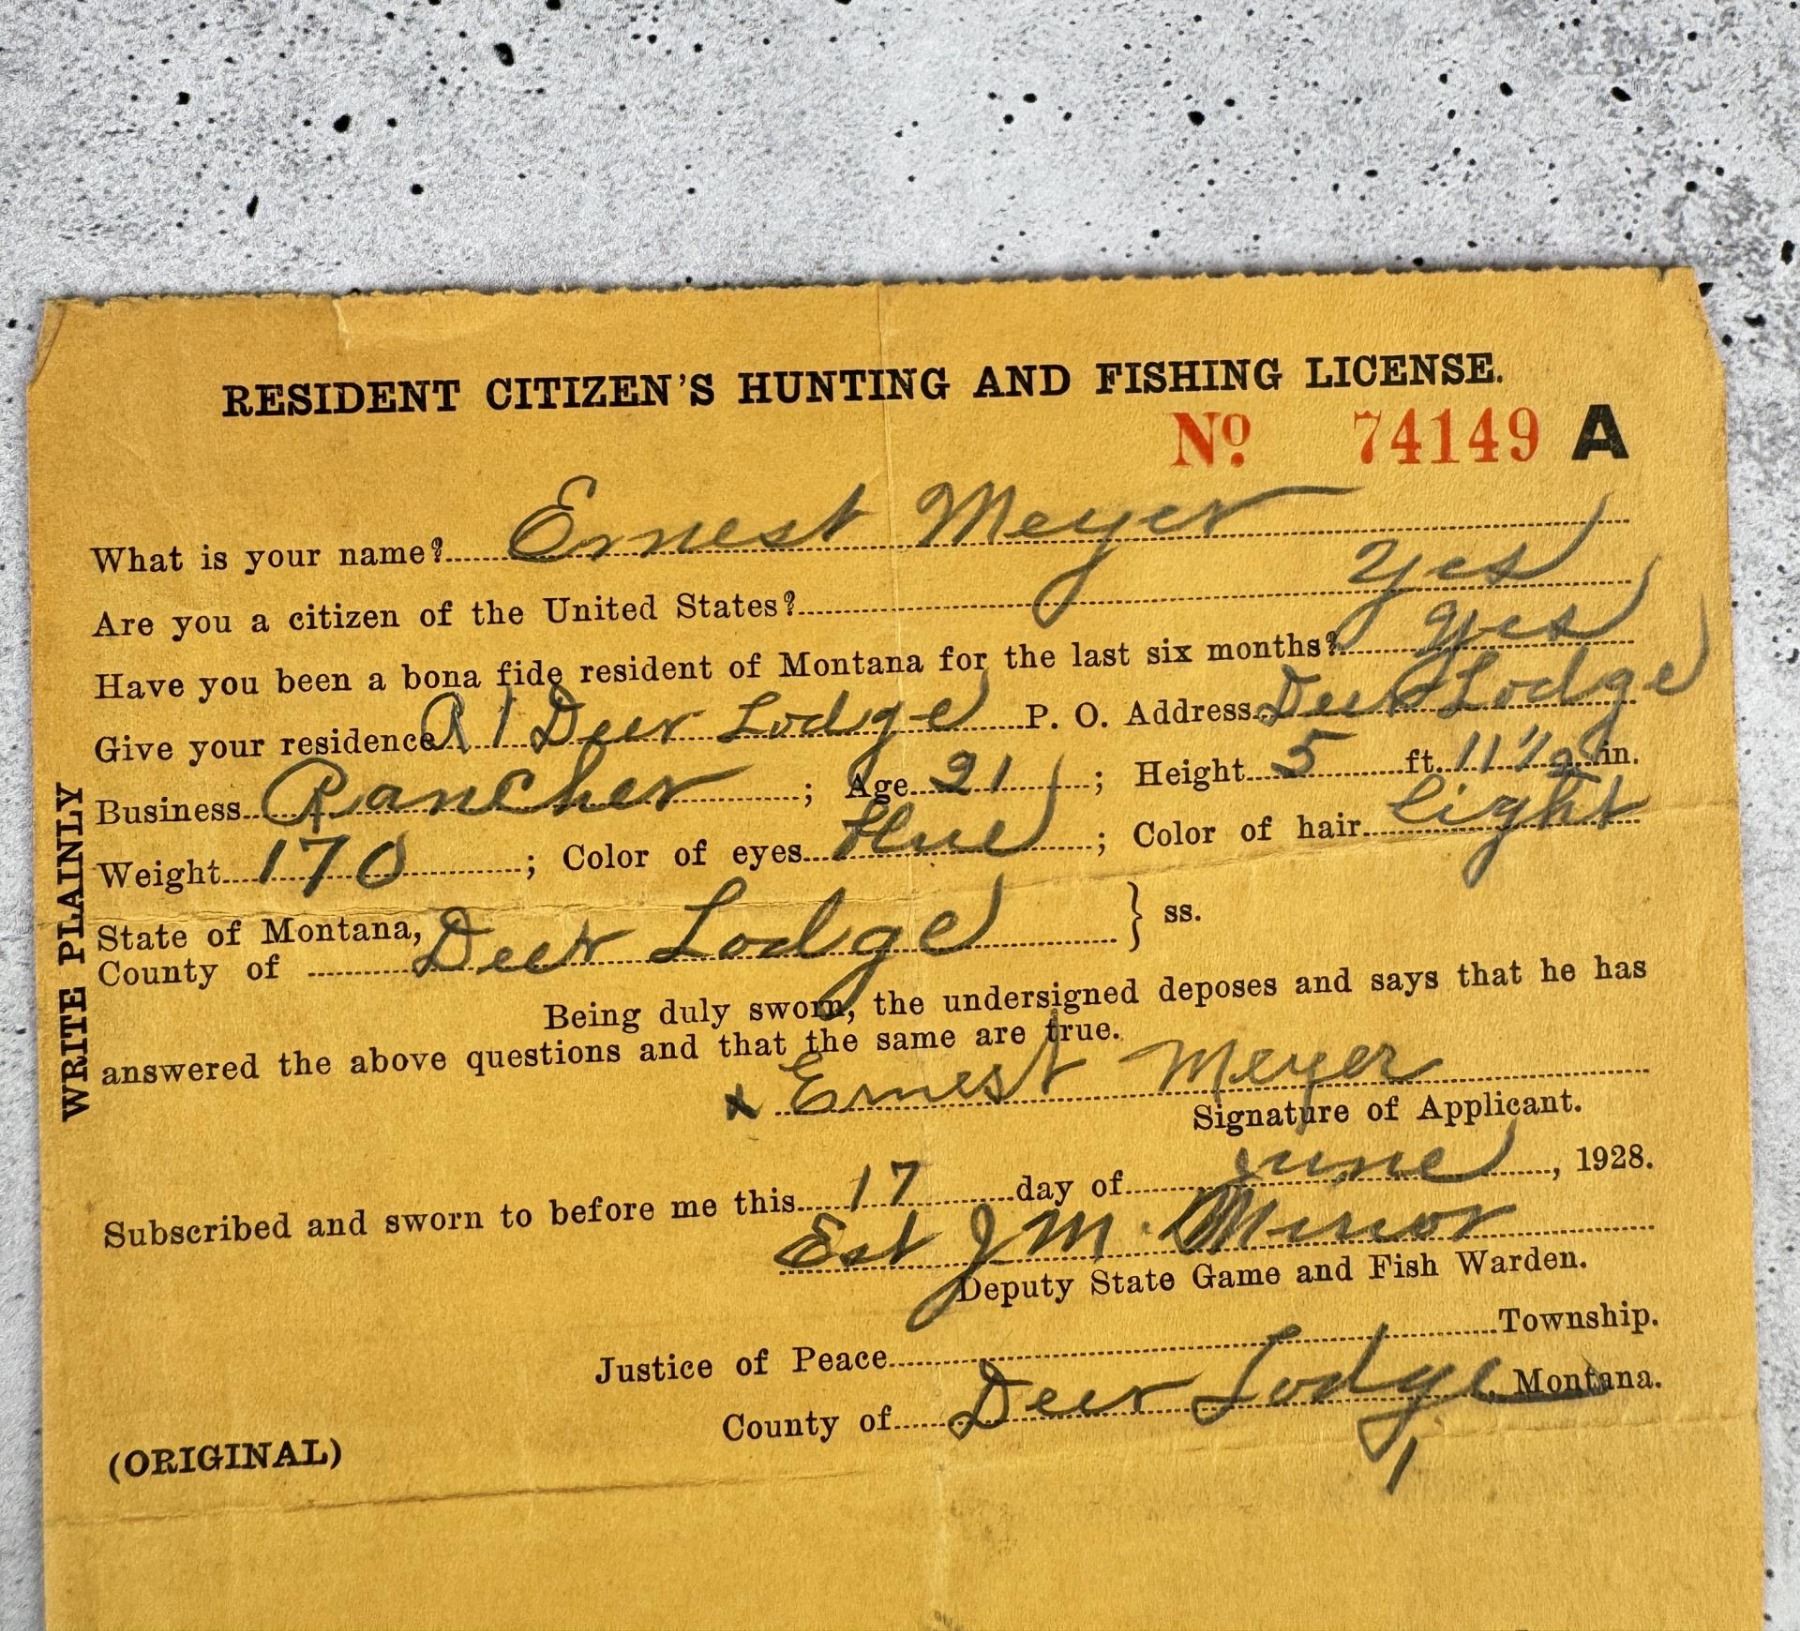 RESIDENT CITIZEN'S HUNTING AND FISHING LICENSE.
No. 74149 A
What is your name? Ernest Meyer
Are you a citizen of the United States? Yes
Have you been a bona fide resident of Montana for the last six months? yes
Give your residence R 1 Deer Lodge P. O. Address Deer Lodge
Business Rancher ; Age 21 ; Height 5 ft. 11 1/2 in.
Weight 170 ; Color of eyes blue ; Color of hair light
WRITE PLAINLY
State of Montana,
County of Deer Lodge } ss.
Being duly sworn, the undersigned deposes and says that he has
answered the above questions and that the same are true.
x Ernest Meyer
Signature of Applicant.
Subscribed and sworn to before me this 17 day of June, 1928.
Est J M. Minor
Deputy State Game and Fish Warden.
Justice of Peace Township.
County of Deer Lodge, Montana.
(ORIGINAL)